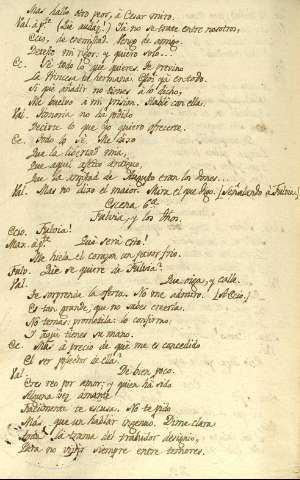 Mas hallo otro peor, á Cesar miro.
Val. á pte. (Qué audaz!) Ya no se trate entre nosotros,
Ecio, de enemistad. Vengo de amigo.
Detesto mi rigor, y quiero solo..
Ec. Sé todo lo que quieres. Te previno
La Princesa tu hermana.
Si qué añadir no tienes á lo dicho,
Me buelvo a mi prision. Hablé con ella.
Val. Honoria no ha podido
Decirte lo que yo quiero ofrecerte.
Ec. Todo lo sé. Me dixo
Que la libertad mia,
Que aquel afecto antiguo,
Que la amistad de Augusto eran los dones...
Val. Mas no dixo el maior. Mira el que digo. (Señalando á Fulvia.)
Escena 6ª
Fulvia, y los dhos.
Ecio. Fulvia!
Max. á pte. Qué será esto!
Me hiela el corazon un pavor frio.
Fulv. Qué se quiere de Fulvia?
Val. Que oiga, y calle.
Te sorprende la oferta. No me admiro. (á Ecio.)
Es tan grande, que no sabes creerla.
No temas: prometela: lo confirmo,
Y aqui tienes su mano.
Ec. Mas á precio de que me es concedido
El ser poseedor de ella?
Val. De bien poco.
Eres reo por amor; y quien ha sido
Alguna vez amante
Facilmente te escusa. No te pido
Mas que un hablar ingenuo. Dime clara
Toda la trama del traidor designio,
Para no vivir siempre entre temores.